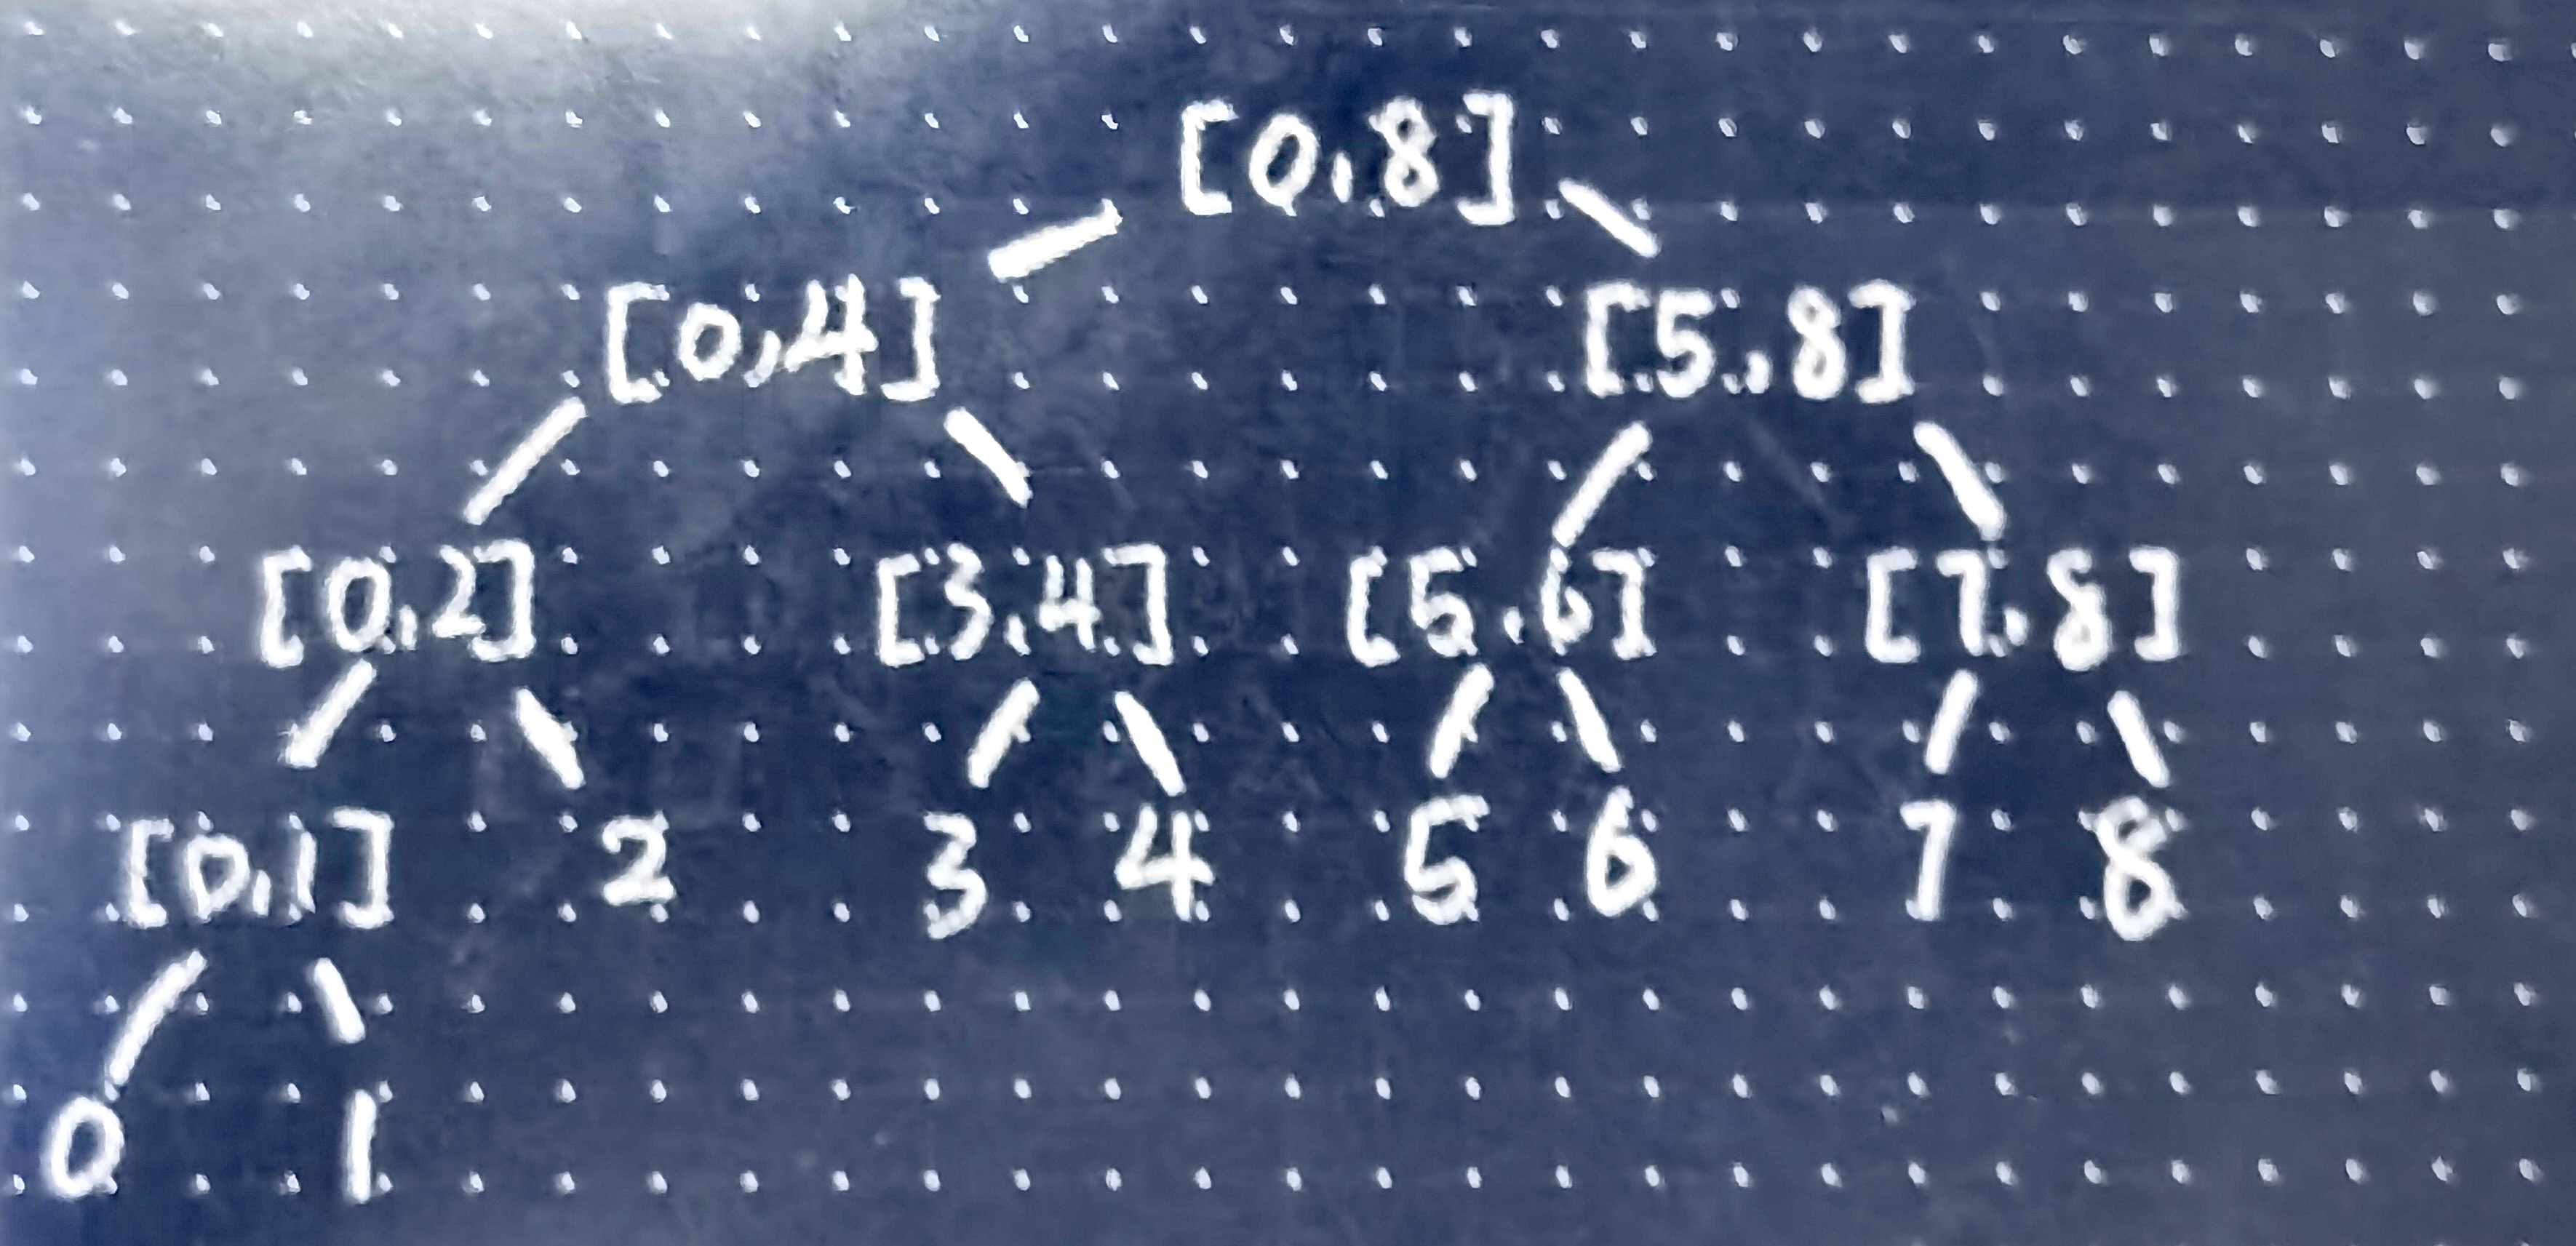 [0,8]
[0,4] [5,8]
[0,2] [3,4] [5,6] [7,8]
[0,1] 2 3 4 5 6 7 8
0 1